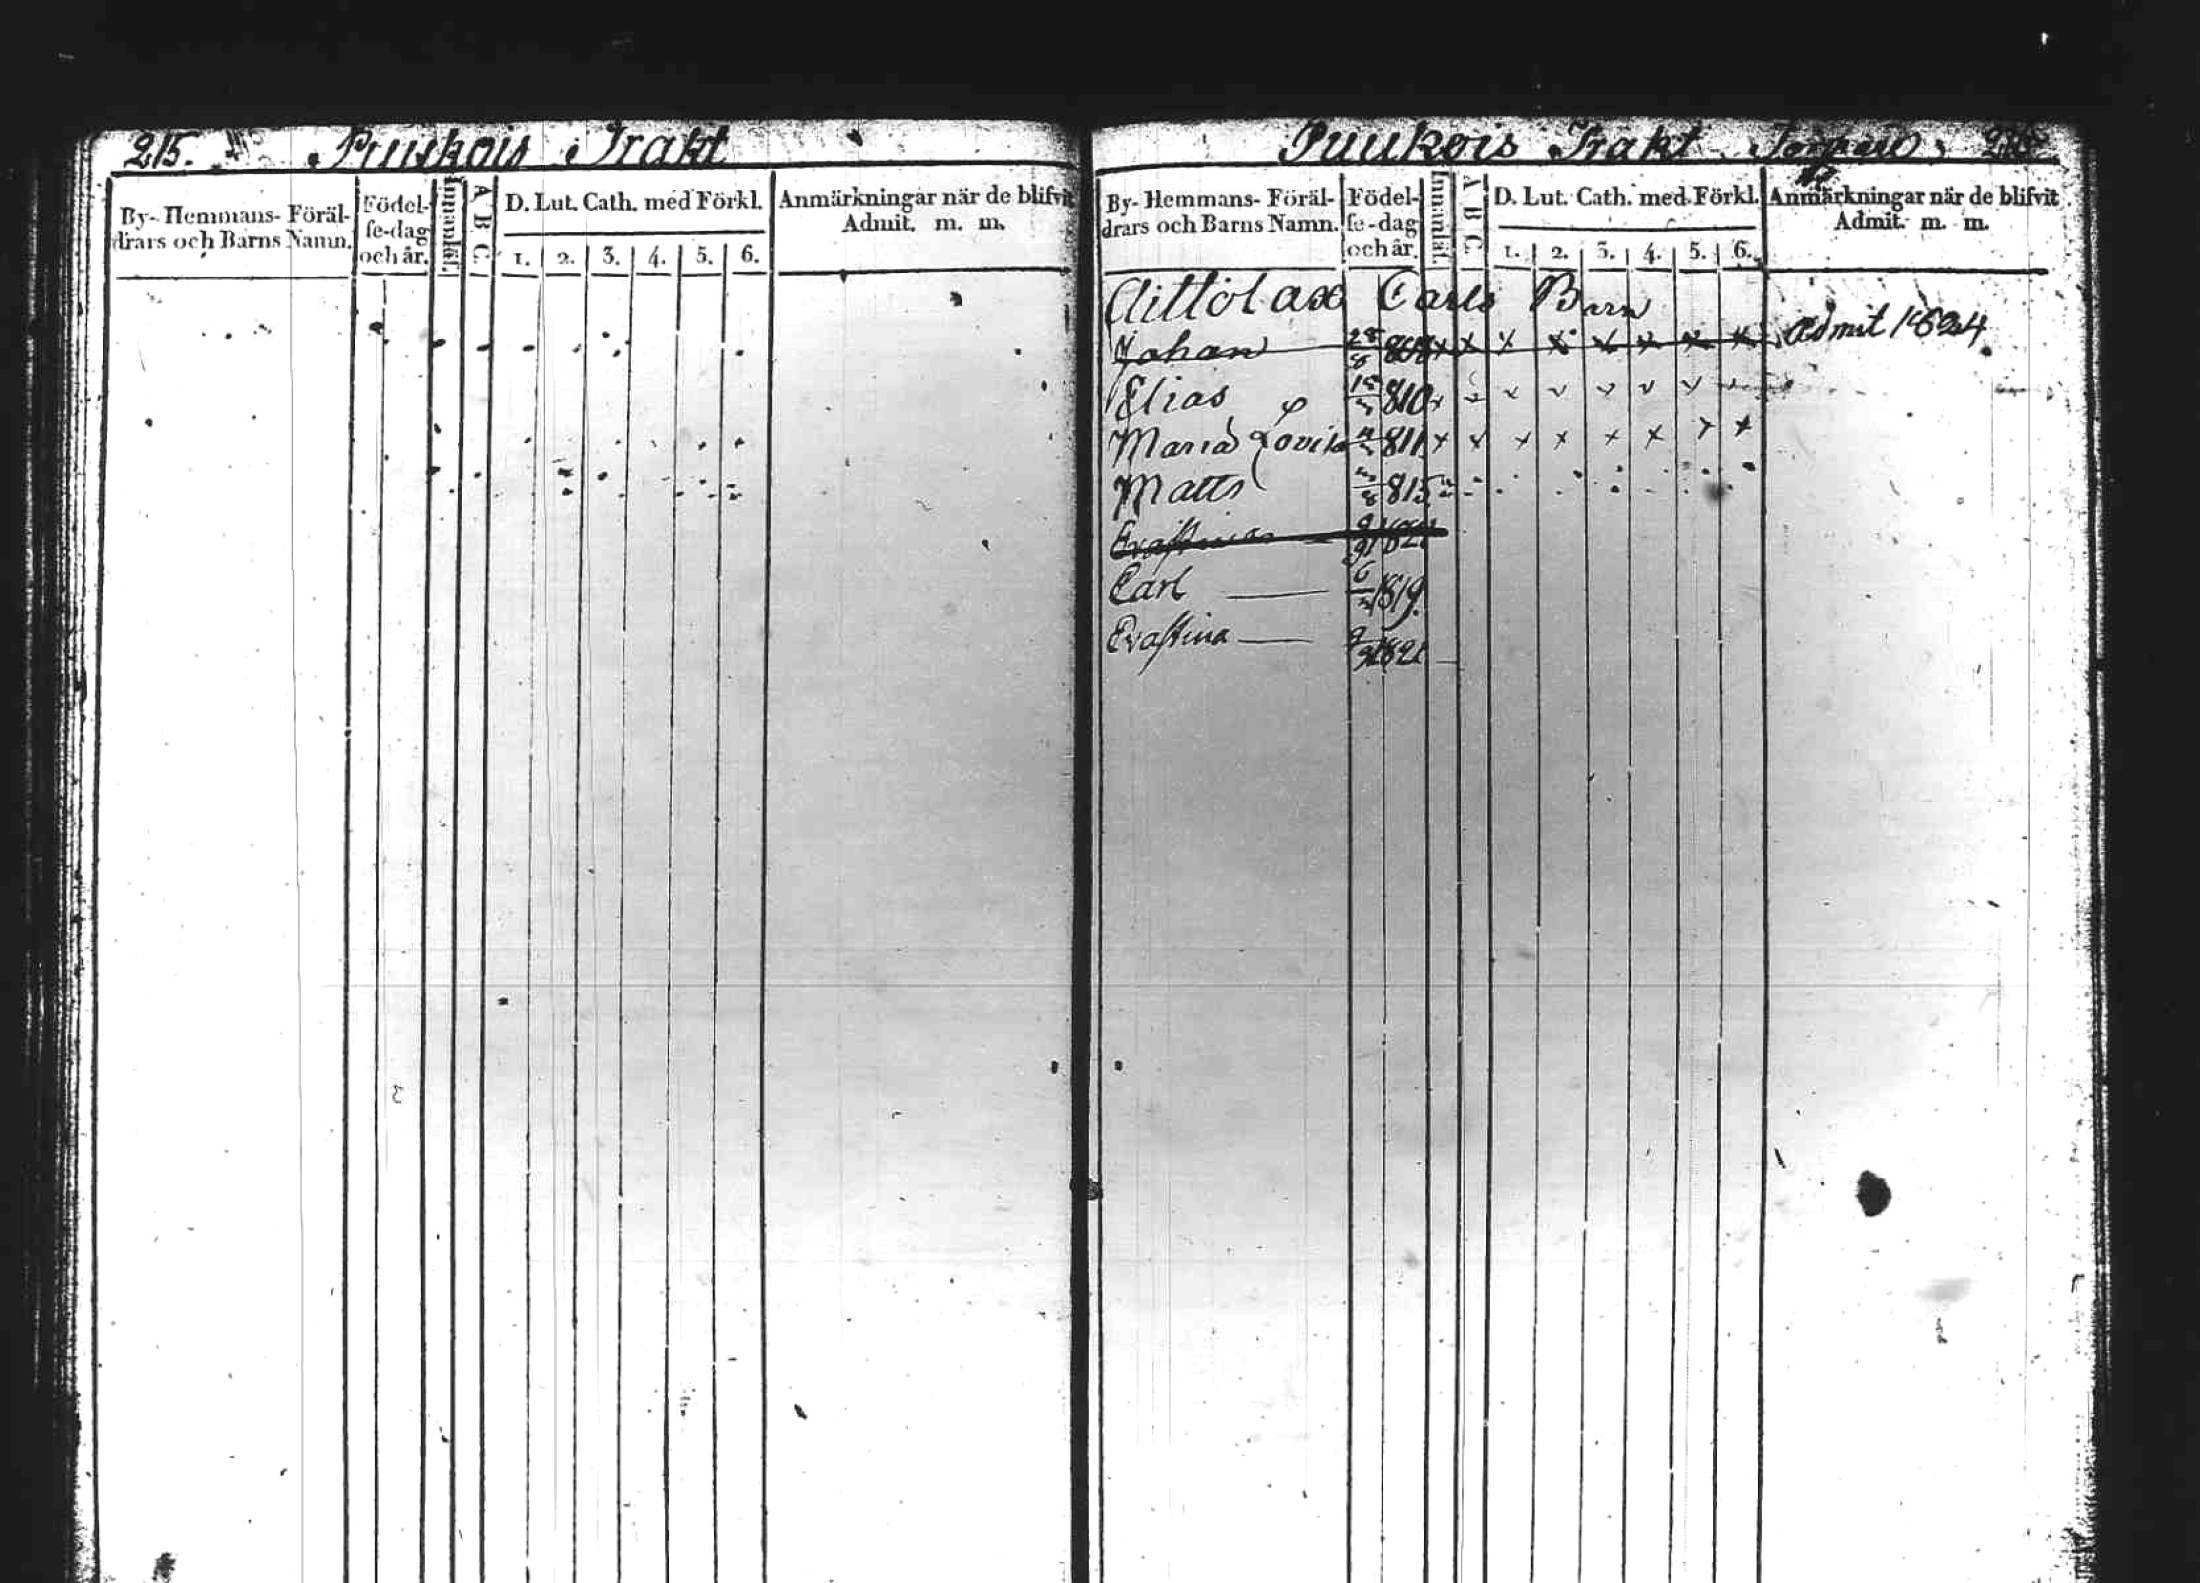 215. Puukois Trakt
By- Hemmans- Föräl-
drars och Barns Namn.
Födel-
se-dag
och år.
Innanläs.
A B C
D. Lut. Cath. med Förkl.
1. 2. 3. 4. 5. 6.
Anmärkningar när de blifvit
Admit. m. m.
Puukois Trakt
By- Hemmans- Föräl-
drars och Barns Namn.
Födel-
se-dag
och år.
Innanläs.
A B C
D. Lut. Cath. med Förkl.
1. 2. 3. 4. 5. 6.
Anmärkningar när de blifvit
Admit. m. m.
Carls Barn
Johan 28/8 808 x x x x x x x x Admit 1824
Elias 810
Maria Lovisa 811 x x x x x x x x
Matts 815
Evastina 1821
Carl 6 1819.
Evastina 1821